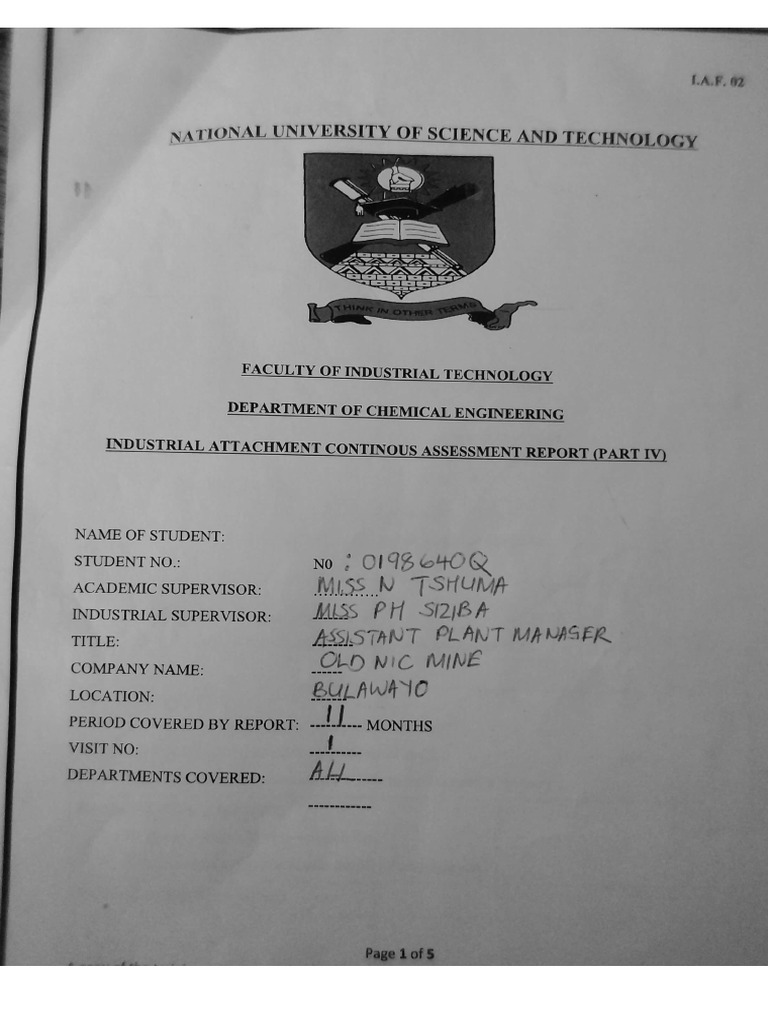 I.A.F. 02
NATIONAL UNIVERSITY OF SCIENCE AND TECHNOLOGY
THINK IN OTHER TERMS
FACULTY OF INDUSTRIAL TECHNOLOGY
DEPARTMENT OF CHEMICAL ENGINEERING
INDUSTRIAL ATTACHMENT CONTINOUS ASSESSMENT REPORT (PART IV)
NAME OF STUDENT:
STUDENT NO.: N0 : 0198640Q
ACADEMIC SUPERVISOR: MISS N TSHUMA
INDUSTRIAL SUPERVISOR: MISS PH SIZIBA
TITLE: ASSISTANT PLANT MANAGER
COMPANY NAME: OLD NIC MINE
LOCATION: BULAWAYO
PERIOD COVERED BY REPORT: 11 MONTHS
VISIT NO: 1
DEPARTMENTS COVERED: ALL
Page 1 of 5